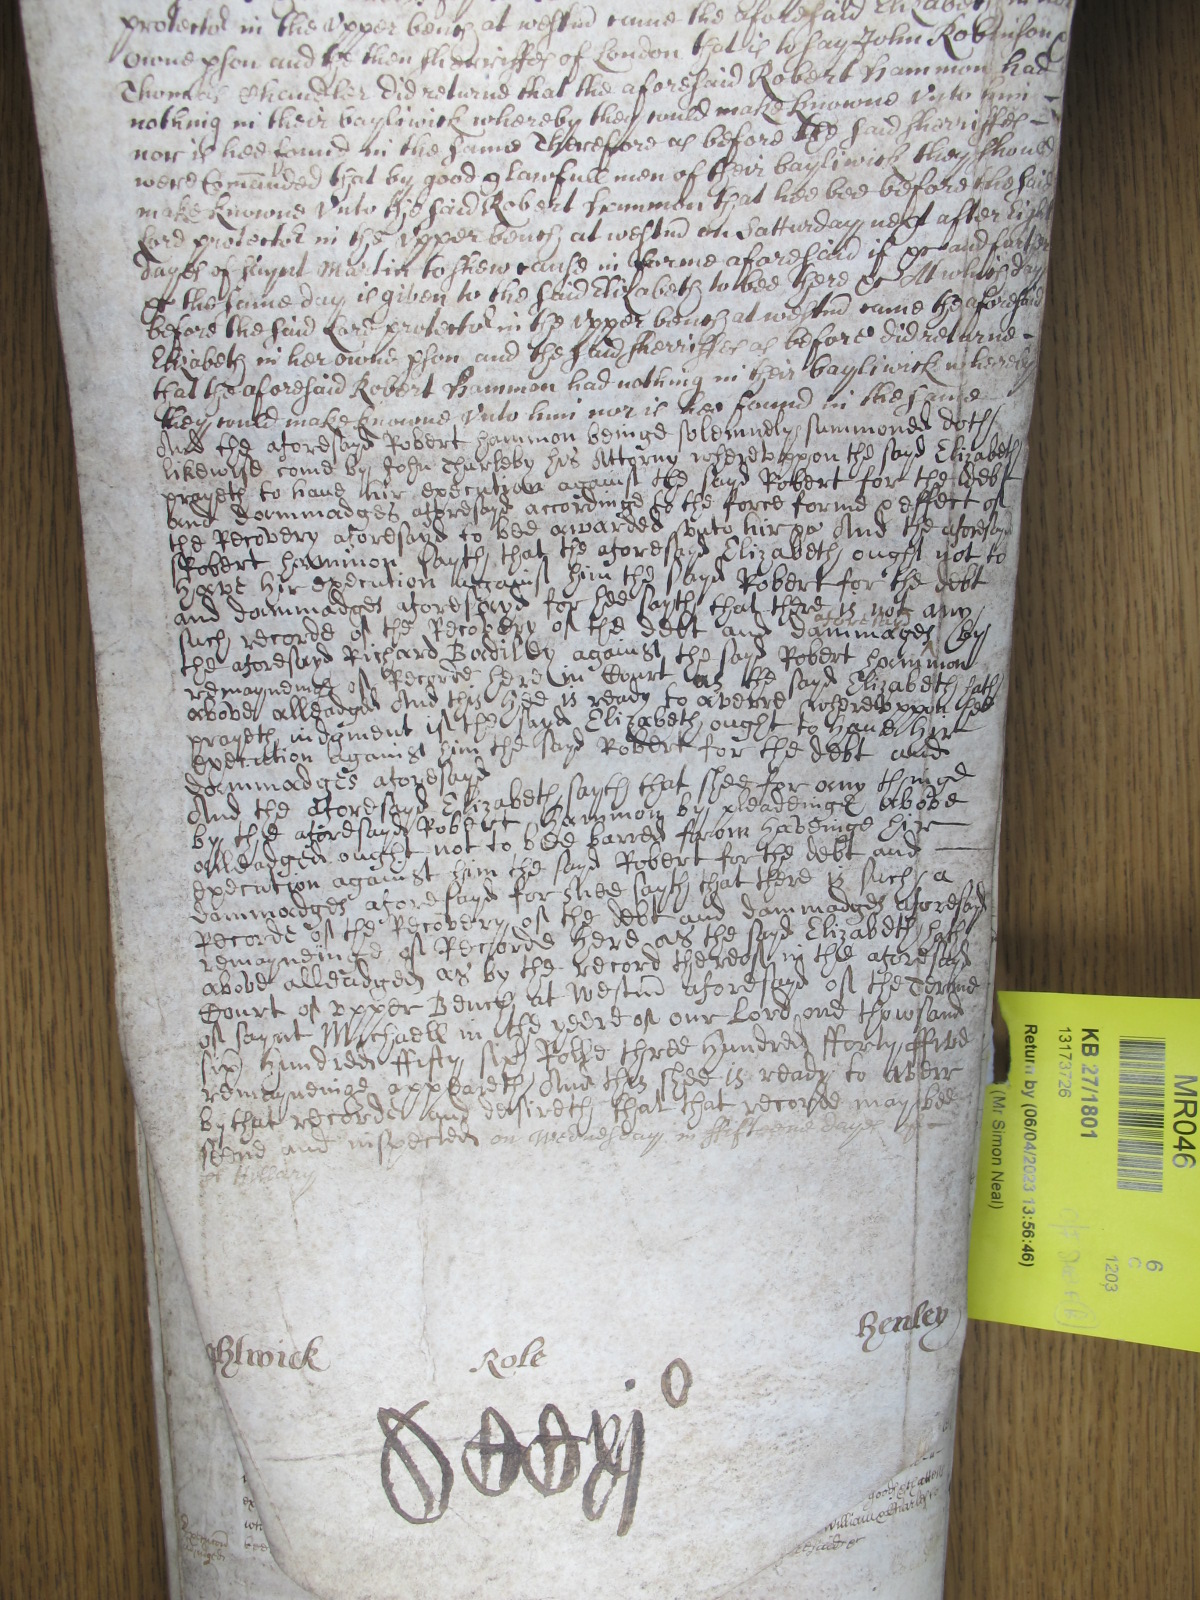 protector in the Upper bench at westm came the aforesaid Elizabeth in her
owne pson and the then sherriffes of London that is to say John Robinson &
Thomas Chandler did returne that the aforesaid Robert Hammon had
nothing in their bayliwick whereby they could make knowne Unto him
nor is hee found in the same Therefore as before the said sherriffes
were Comanded that by good & lawfull men of their bayliwick they should
make knowne Unto the said Robert Hammon that hee bee before the said
Lord protector in the Upper bench at westm on Satturday next after Eight
dayes of Saynt Martin to shew cause in forme aforesaid if &c and further
&c the same day is given to the said Elizabeth to bee there &c At which day
before the said Lord protector in the Upper bench at westm came the aforesaid
Elizabeth in her owne pson and the said sherriffes as before did returne
that the aforesaid Robert Hammon had nothing in their bayliwick whereby
they could make knowne Unto him nor is hee found in the same
And the aforesayd Robert Hammon beinge solemnely summoned doth
likewise come by John Thurleby his Attorny wherevppon the sayd Elizabeth
prayeth to haue hir execution against the sayd Robert for the debt
and dammadges aforesayd accordinge to the force forme & effect of
the Recovery aforesayd to bee awarded vnto hir &c And the aforesayd
Robert Hammon sayth that the aforesayd Elizabeth ought not to
have hir execution against him the sayd Robert for the debt
and dammadges aforesayd for hee sayth that there is not any
such recorde of the Recovery of the debt and dammages aforesayd by
the aforesayd Richard Badiley against the sayd Robert Hammon
remayneinge of Recorde here in Court as the sayd Elizabeth hath
above alleadged And this hee is ready to averre wherevppon hee
prayeth iudgment if the sayd Elizabeth ought to haue hir
execution against him the sayd Robert for the debt and
dammadges aforesayd
And the aforesayd Elizabeth sayth that shee for any thinge
by the aforesayd Robert Hammon by pleadeinge above
alleadged ought not to bee barred from haveinge hir
execution against him the sayd Robert for the debt and
dammadges aforesayd for shee sayth that there is such a
Recorde of the Recovery of the debt and dammadges aforesayd
remayneinge of Recorde here as the sayd Elizabeth hath
above alleadged as by the record thereof in the aforesayd
Court of vpper Bench at Westm aforesayd of the Terme
of saynt Michaell in the yeere of our Lord one thowsand
six hundred ffifty six Rolle three hundred fforty ffive
remayneinge appeareth And this shee is ready to averr
by that recorde and desireth that that recorde may bee
seene and inspected on Wednesday in ffifteene dayes of
st Hillary
Role
Henley
MR046
KB 27/1801
13173726
Return by (06/04/2023 13:56:46)
(Mr Simon Neal)
6
C
1203